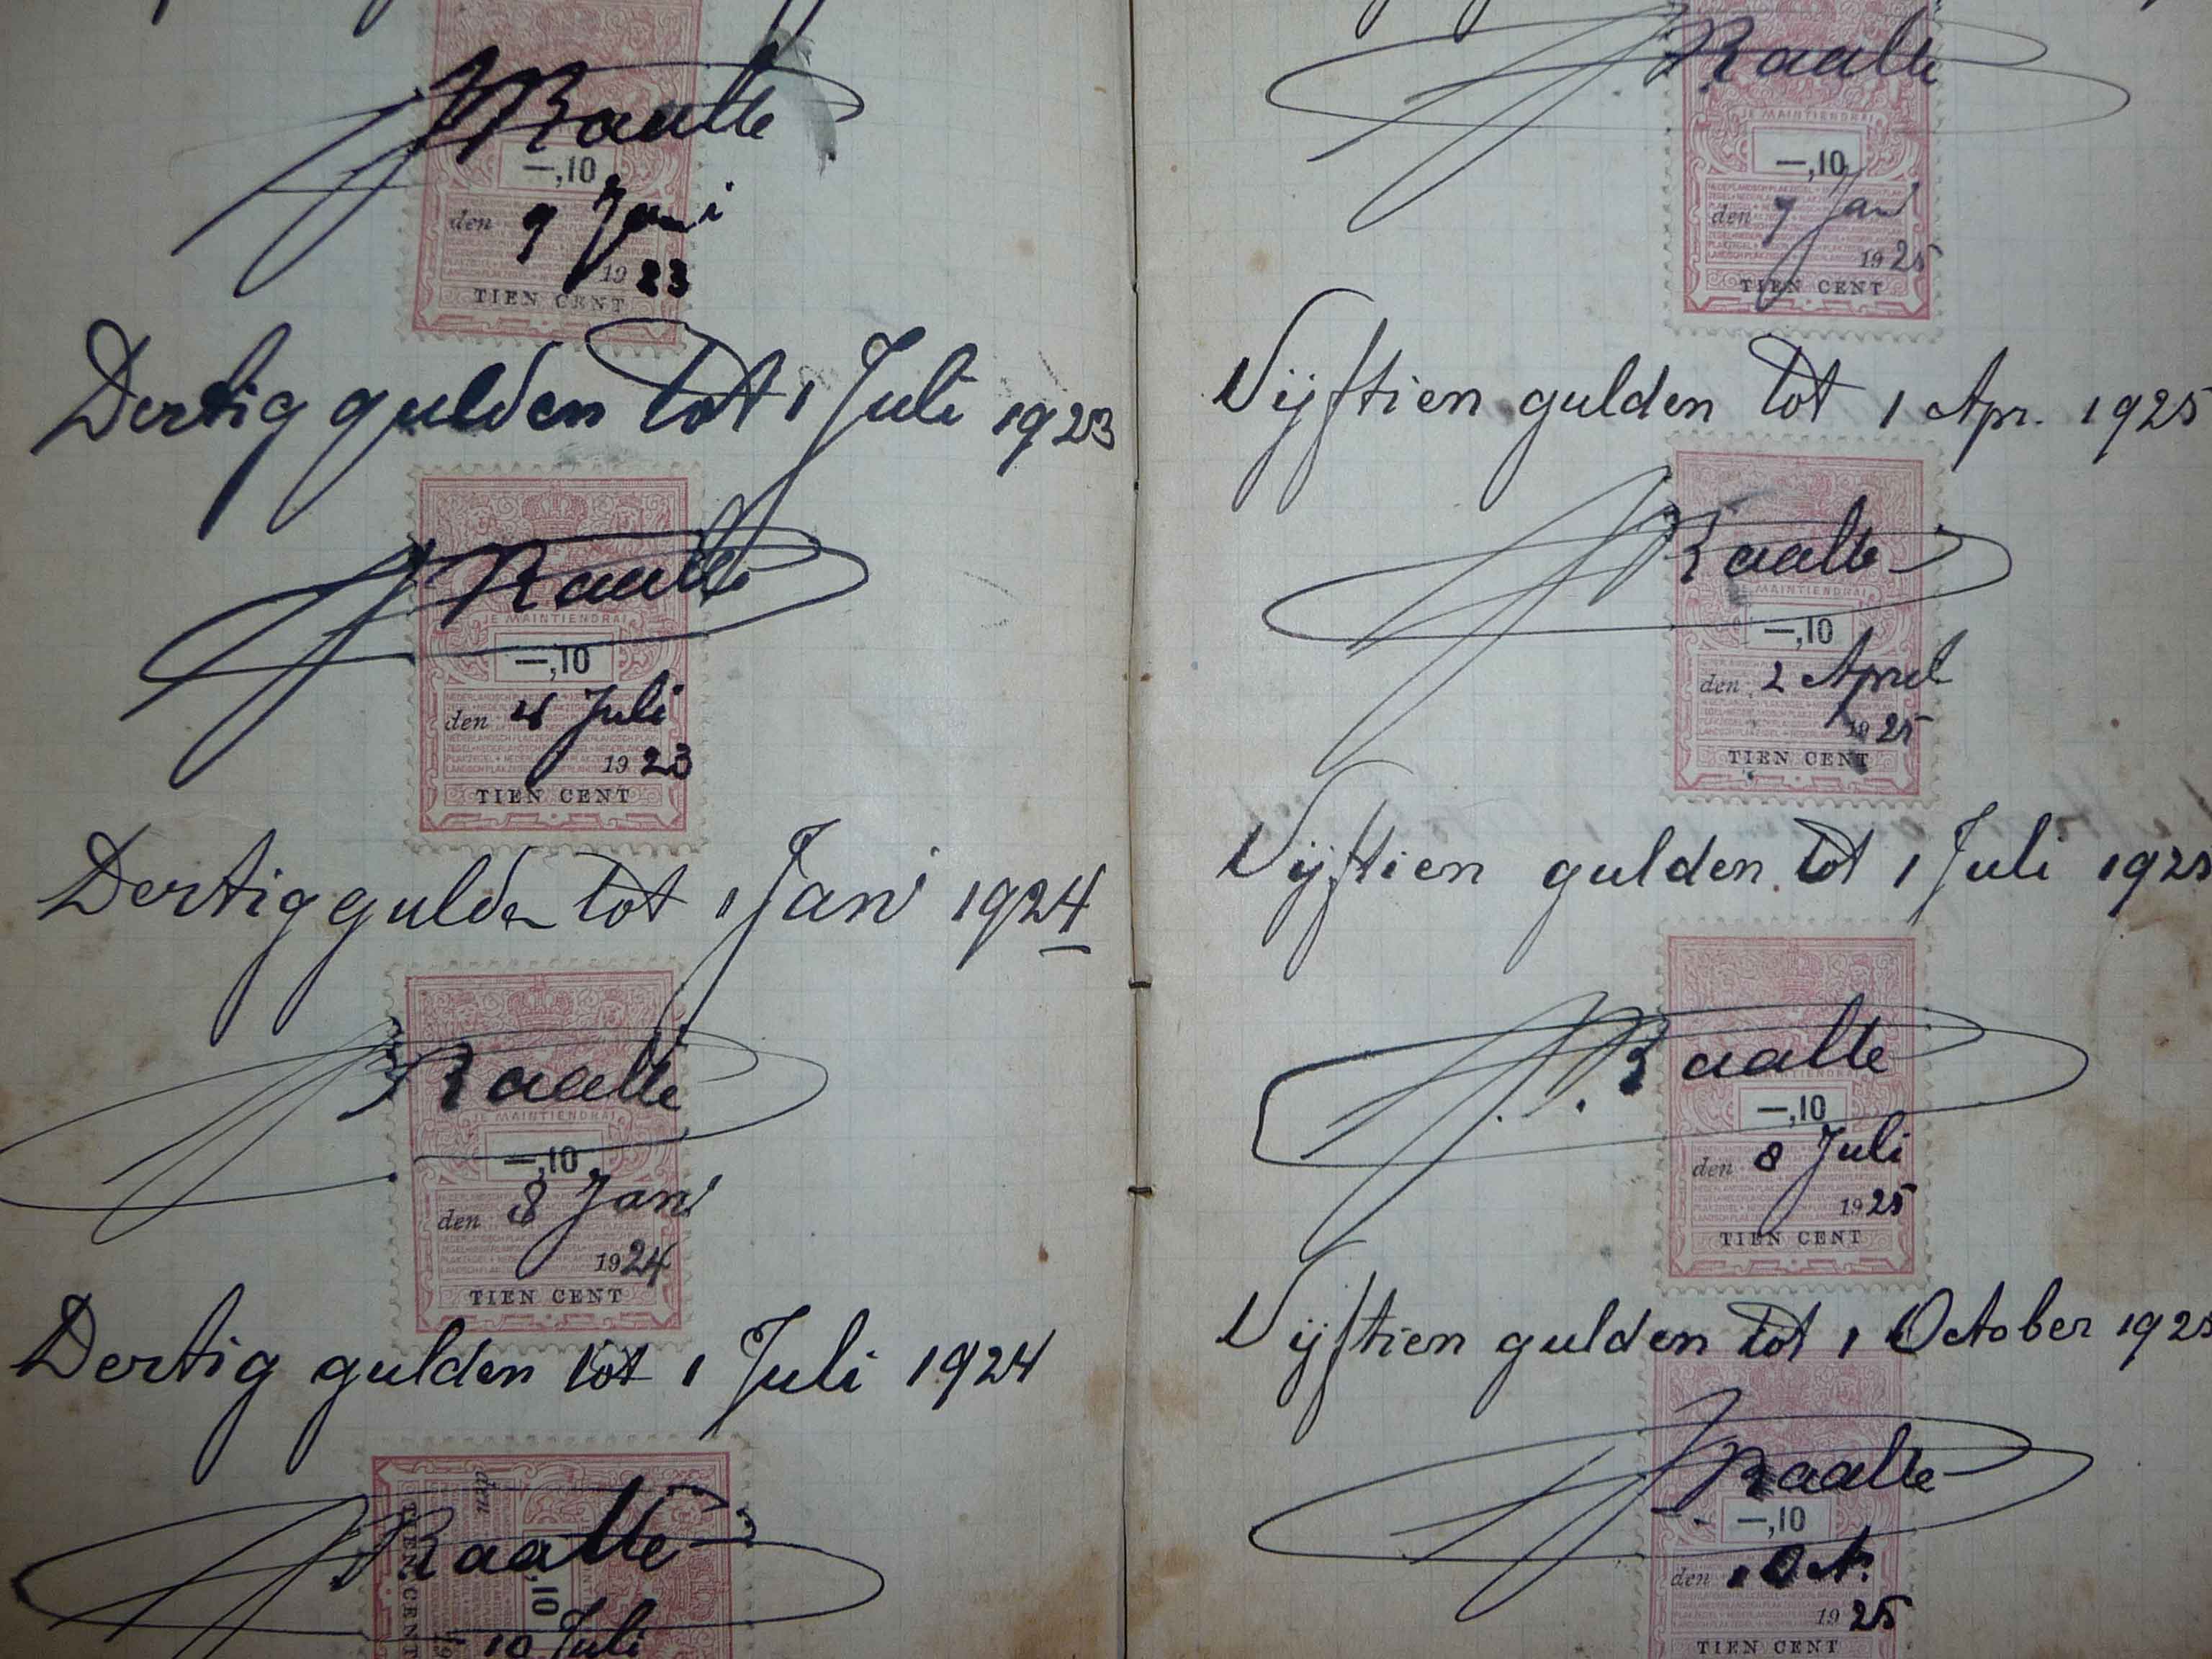 Raalte
—,10
den 9 Jani
1923
TIEN CENT
Dertig gulden tot 1 Juli 1923
Raalte
JE MAINTIENDRAI
—,10
den 4 Juli
1923
TIEN CENT
Dertig gulden tot 1 Jani 1924
Raalte
JE MAINTIENDRAI
—,10
den 8 Jani
1924
TIEN CENT
Dertig gulden tot 1 Juli 1924
Raalte
den
,10
TIEN CENT
10 Juli
Raalte
JE MAINTIENDRAI
—,10
den 7 Jan
1925
TIEN CENT
Vijftien gulden tot 1 Apr. 1925
Raalte
MAINTIENDRAI
—,10
den 2 April
1925
TIEN CENT
Vijftien gulden tot 1 Juli 1925
Raalte
—,10
den 8 Juli
1925
TIEN CENT
Vijftien gulden tot 1 October 1925
Raalte
—,10
den 1 Oct.
1925
TIEN CENT